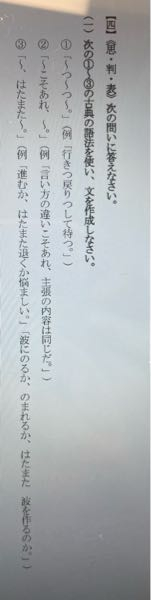 【四】（思・判・表）次の問いに答えなさい。
（一）次の①～③の古典の語法を使い、文を作成しなさい。
①「～つ～つ。」（例「行きつ戻りつして待つ。」）
②「～こそあれ、～。」（例「言い方の違いこそあれ、主張の内容は同じだ。」）
③「～、はたまた～。」（例「進むか、はたまた退くか悩ましい。」「波にのるか、のまれるか、はたまた　波を作るのか。」）